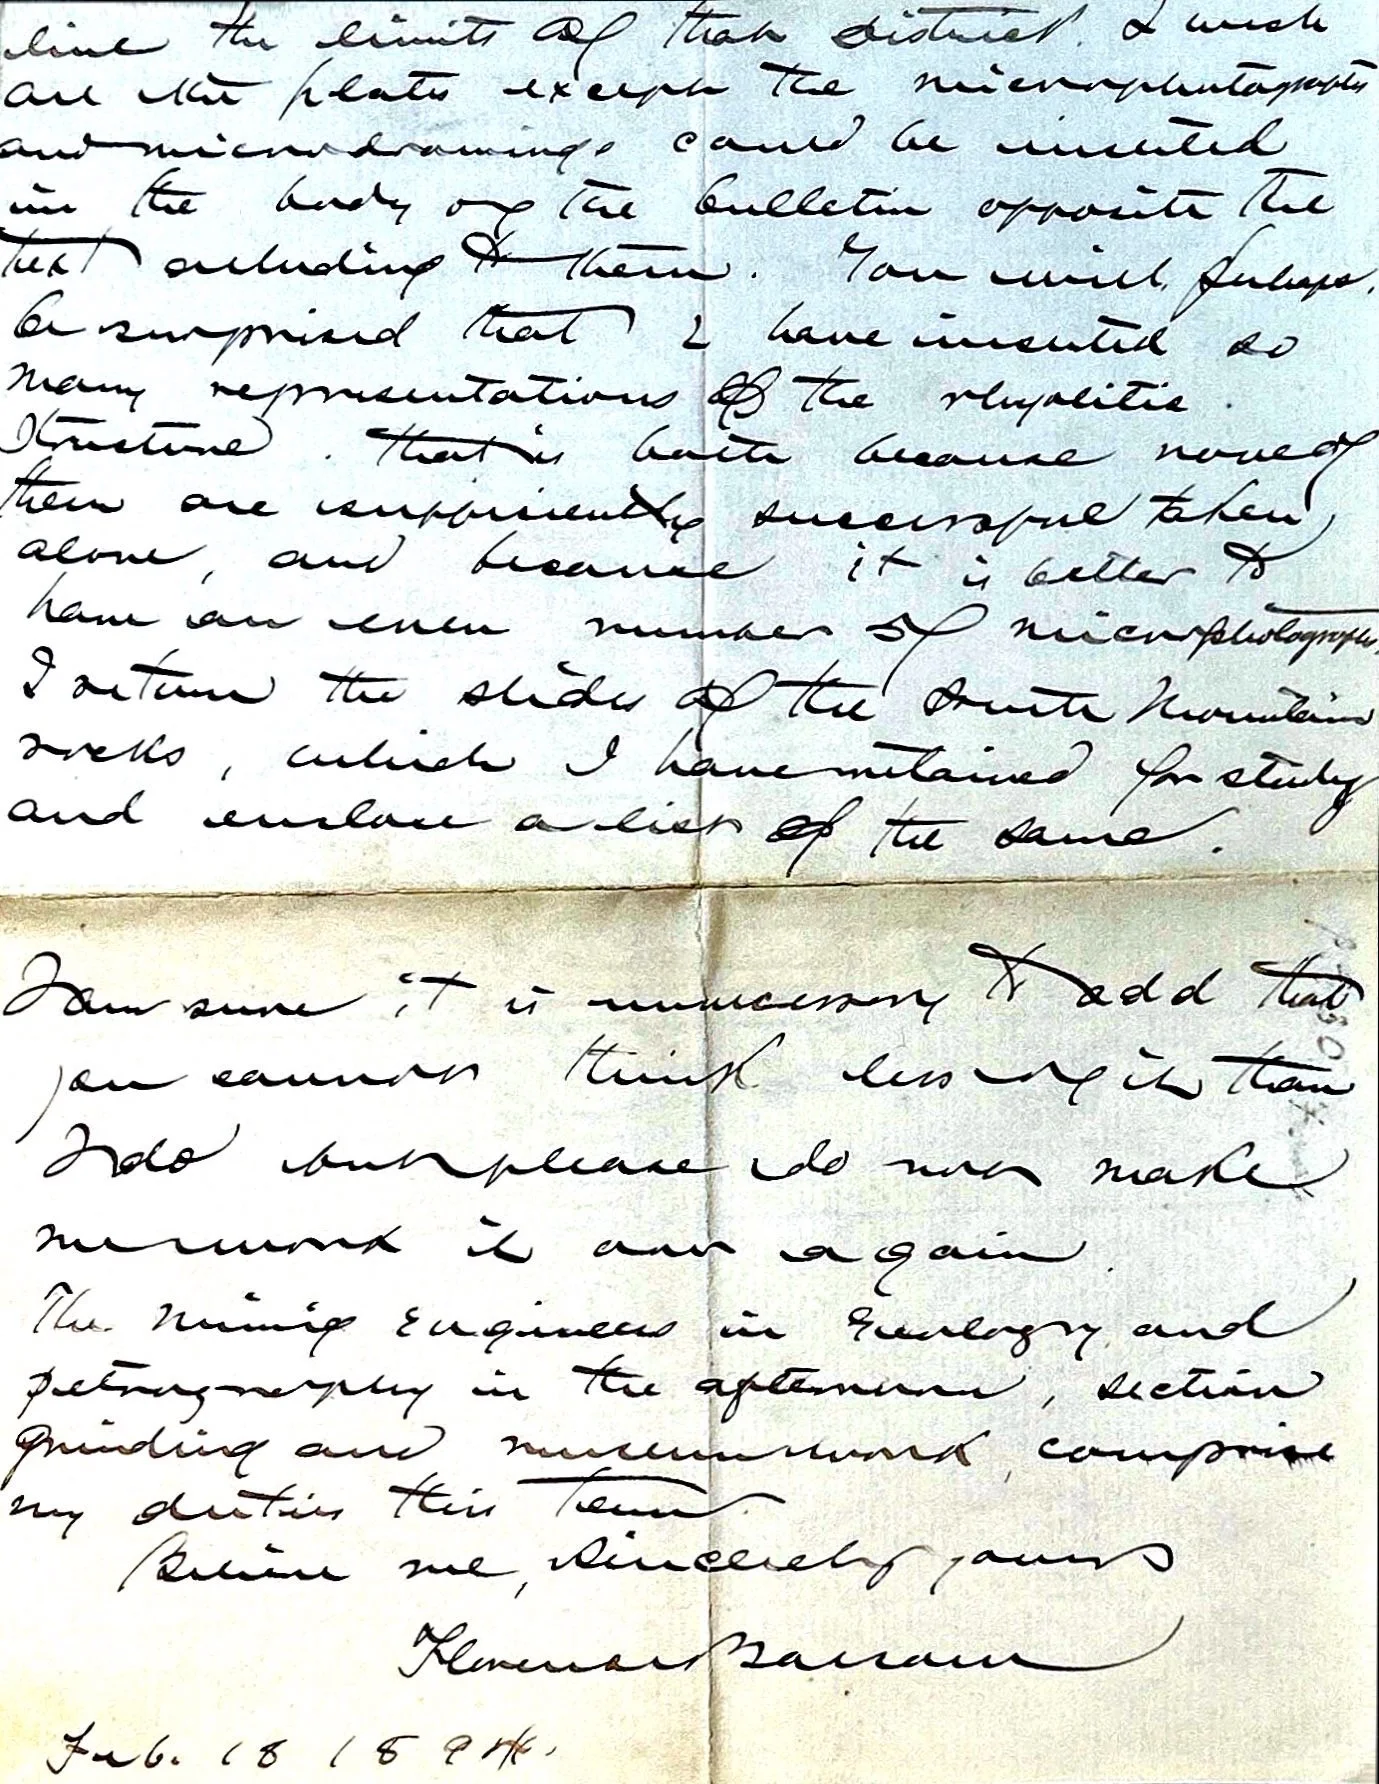 line the limits of that district. I wish
all the plates except the microphotographs
and microdrawings could be inserted
in the body of the bulletin opposite the
text alluding to them. You will perhaps.
be surprised that I have inserted so
many representations of the rhyolitic
structure. That is both because none of
them are sufficiently successful taken
alone, and because it is better to
have an even number of microphotographs.
I return the slides of the South Mountain
rocks, which I have retained for study
and enclose a list of the same.
I am sure it is unnecessary to add that
you cannot think less of it than
I do but please do not make
me work it over again.
The Mining Engineers in Geology and
petrography in the afternoon, section
grinding and museum work, comprise
my duties this term.
Believe me, sincerely yours
Florence Bascom
Feb. 18 1894.